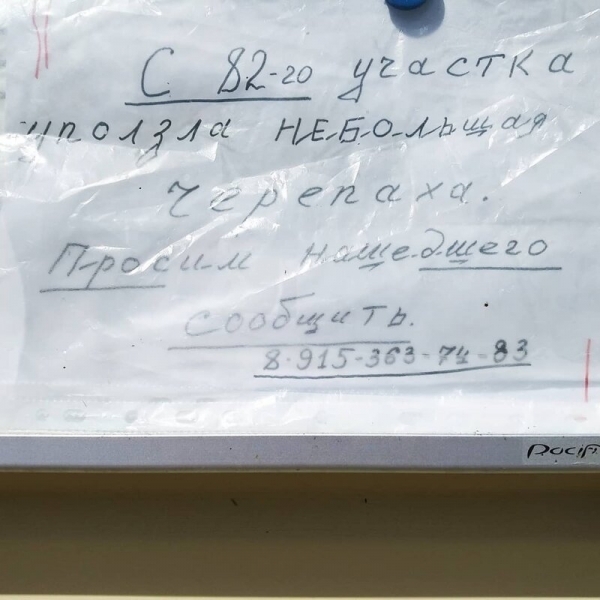 С 82-го участка
уползла НЕБОльшая
черепаха.
Просим нашедшего
сообщить.
8-915-363-74-83